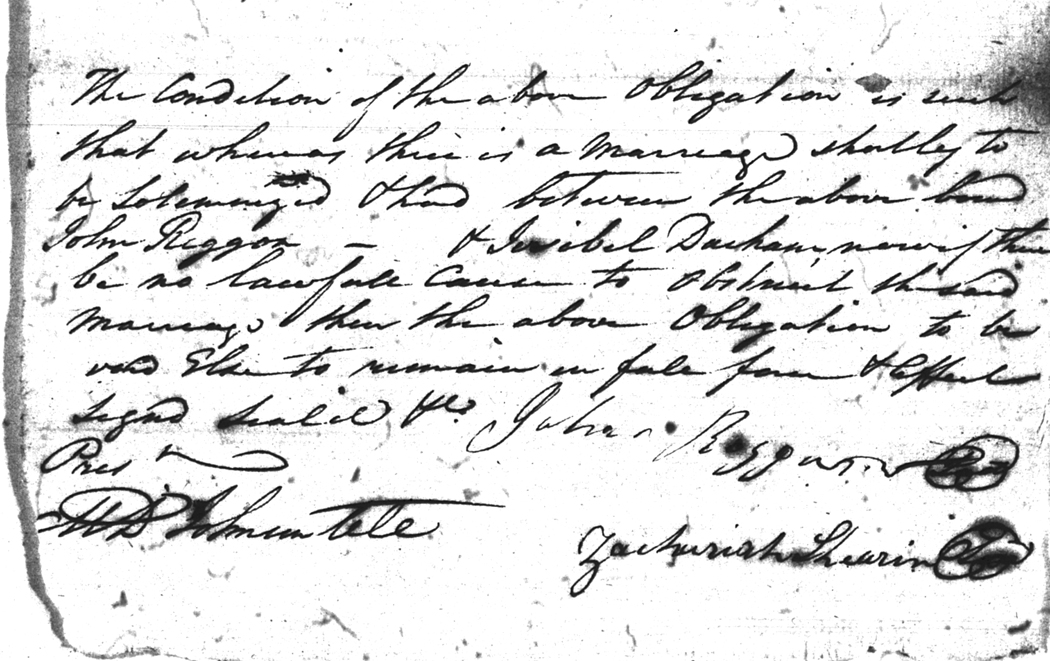 The Condition of the above Obligation is such
that whereas there is a Marriage shortly to
be Solemnized & had between the above bound
John Riggon — & Issibel Dacham, now if there
be no lawfull Cause to Obstruct the said
Marriage then the above Obligation to be
void Else to remain in full force & Effect
Signd Seald &c. John Riggon
Pres
Zachariah Shearin